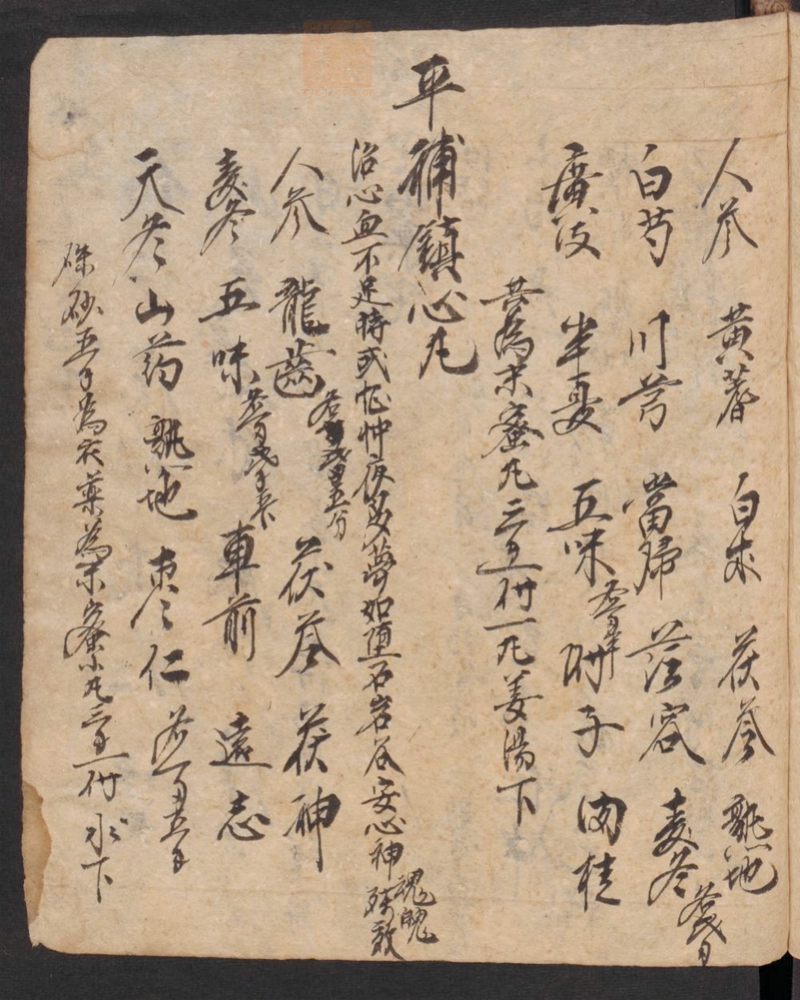 人参 黄蓍 白术 茯苓 熟地
白芍 川芎 當歸 蓯容 麦冬
廣皮 半夏 五味 附子 肉桂
共為末蜜丸 付一丸姜湯下
平補鎮心丸
治心血不足時或怔忡夜多夢如堕石岩 安心神魂魄 殊效
人参 龍齒 茯苓 茯神
麦冬 五味 車前 遠志
天冬 山药 熟地 枣仁
硃砂五 為衣藥為末蜜小丸 付 水下